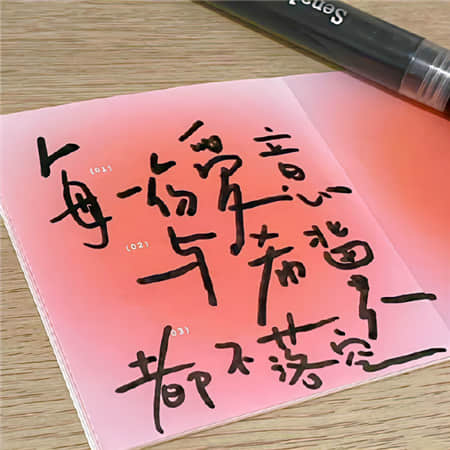 Sens
(01)
每一份爱意
(02)
与希望
03)
都不落空